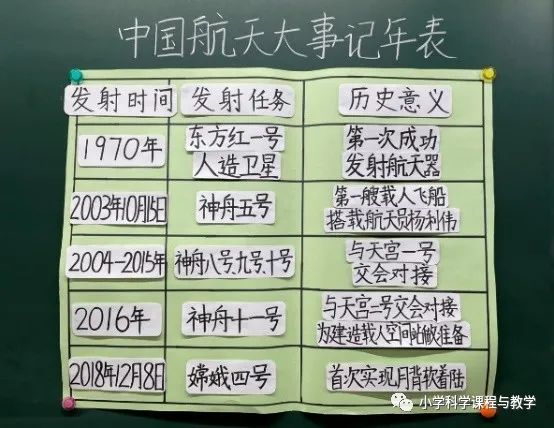 中国航天大事记年表
发射时间 发射任务 历史意义
1970年 东方红一号 人造卫星 第一次成功 发射航天器
2003年10月15日 神舟五号 第一艘载人飞船 搭载航天员杨利伟
2004-2015年 神舟八号、九号、十号 与天宫一号 交会对接
2016年 神舟十一号 与天宫二号交会对接 为建造载人空间站做准备
2018年12月8日 嫦娥四号 首次实现月背软着陆
小学科学课程与教学